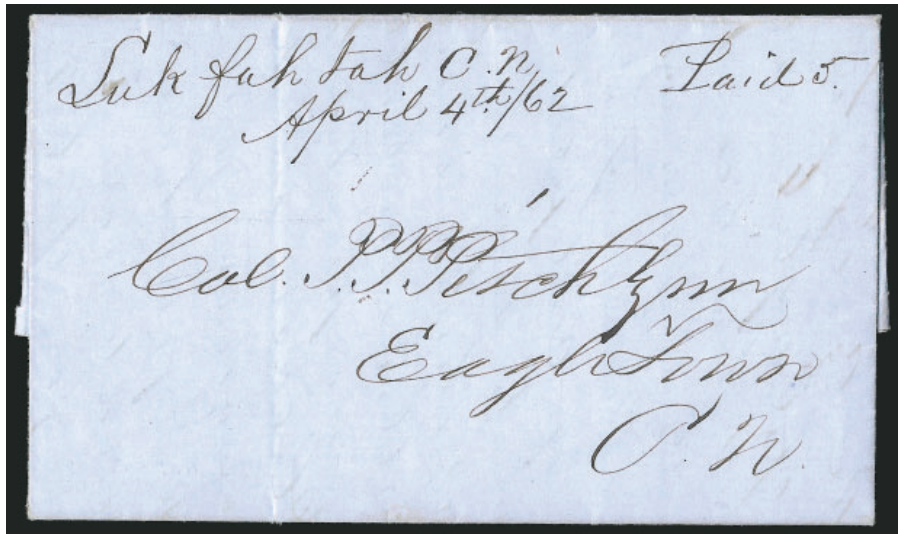 Luk fah tah C.N. Paid 5.
April 4th/62
Col. P.P. Pitchlynn
Eagle Town
C. N.